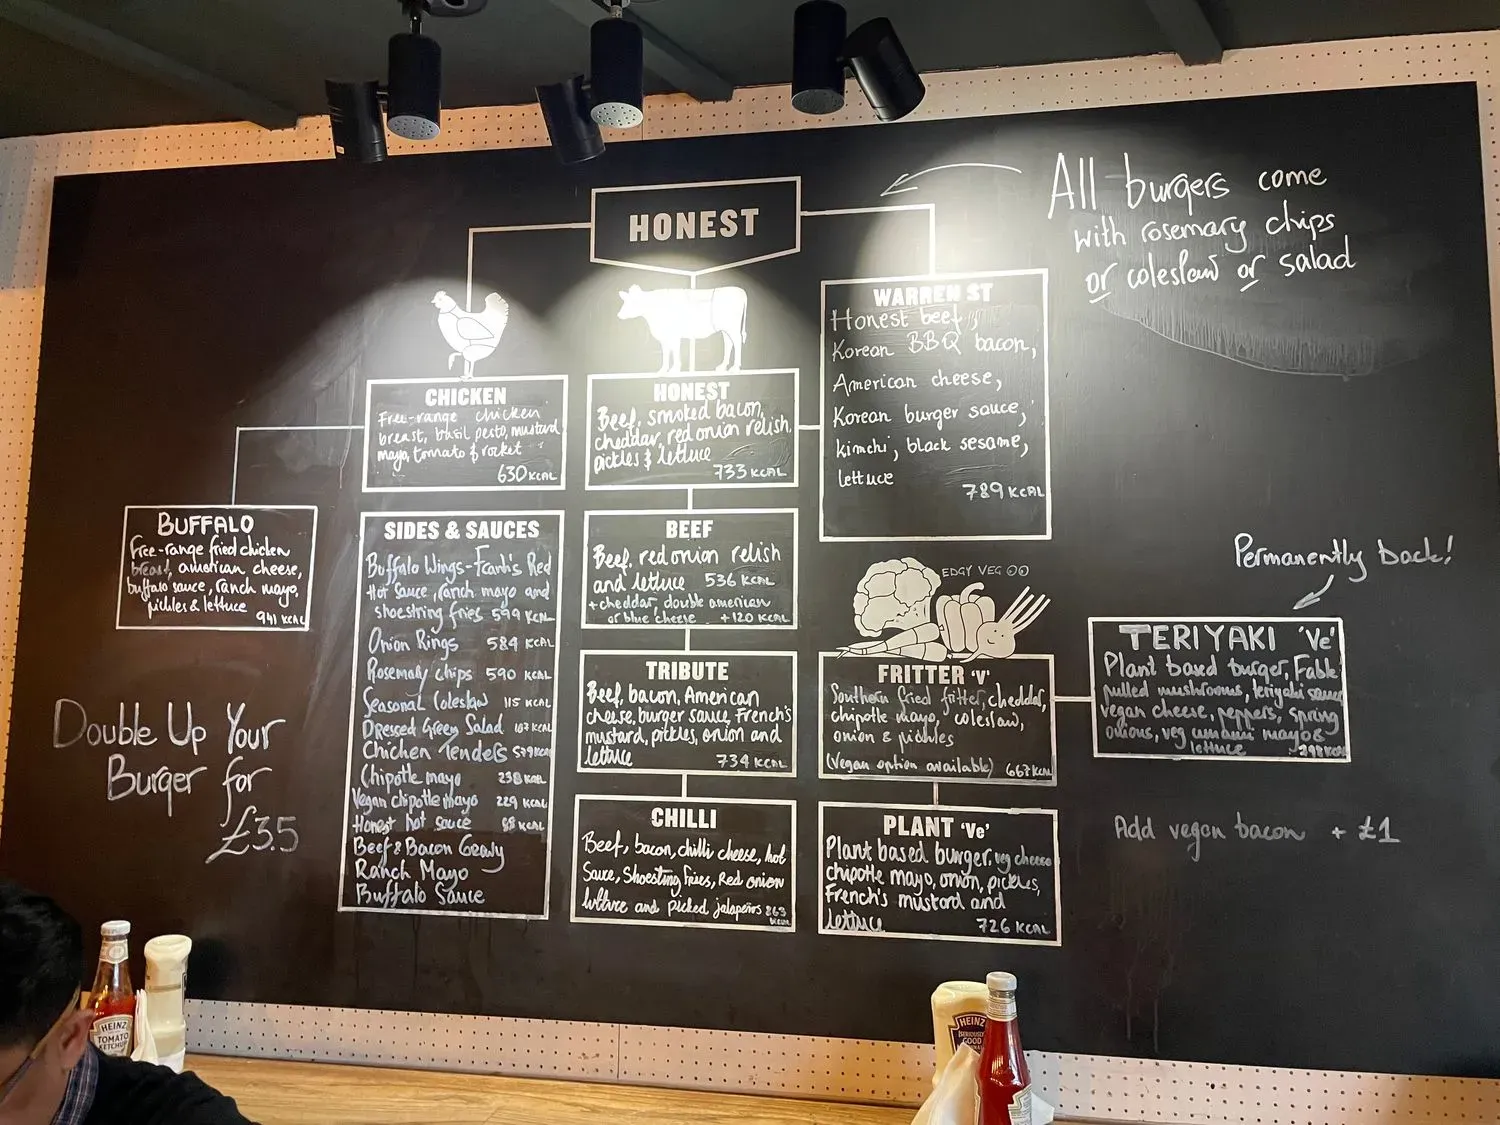 HONEST
All burgers come
with rosemary chips
or coleslaw or salad
CHICKEN
Free-range chicken
breast, basil pesto, mustard
mayo, tomato & rocket
630 KCAL
HONEST
Beef, smoked bacon,
cheddar, red onion relish,
pickles & lettuce
733 KCAL
WARREN ST
Honest beef,
Korean BBQ bacon,
American cheese,
Korean burger sauce,
kimchi, black sesame,
lettuce
789 KCAL
BUFFALO
Free-range fried chicken
breast, american cheese,
buffalo sauce, ranch mayo,
pickles & lettuce
941 KCAL
SIDES & SAUCES
Buffalo Wings - Frank's Red
Hot Sauce, ranch mayo and
shoestring fries 599 KCAL
Onion Rings 584 KCAL
Rosemary chips 590 KCAL
Seasonal Coleslaw 115 KCAL
Dressed Green Salad 107 KCAL
Chicken Tenders 579 KCAL
Chipotle mayo 238 KCAL
Vegan chipotle mayo 229 KCAL
Honest hot sauce KCAL
Beef & Bacon Gravy
Ranch Mayo
Buffalo Sauce
BEEF
Beef, red onion relish
and lettuce 536 KCAL
+ cheddar, double american
or blue cheese +120 KCAL
TRIBUTE
Beef, bacon, American
cheese, burger sauce, French's
mustard, pickles, onion and
lettuce 734 KCAL
CHILLI
Beef, bacon, chilli cheese, hot
Sauce, Shoestring Fries, Red onion
lettuce and pickled jalapeños 863
KCAL
EDGY VEG
FRITTER 'V'
Southern fried fritter, cheddar,
chipotle mayo, coleslaw,
onion & pickles
(Vegan option available) 667 KCAL
PLANT 'Ve'
Plant based burger, veg cheese
chipotle mayo, onion, pickles,
French's mustard and
lettuce 726 KCAL
Permanently back!
TERIYAKI 'Ve'
Plant based burger, Fable
pulled mushrooms, teriyaki sauce
vegan cheese, peppers, spring
onions, veg umami mayo &
lettuce KCAL
Add vegan bacon + £1
Double Up Your
Burger for
£3.5
HEINZ
TOMATO
KETCHUP
HEINZ
[SERIOUSLY]
GOOD